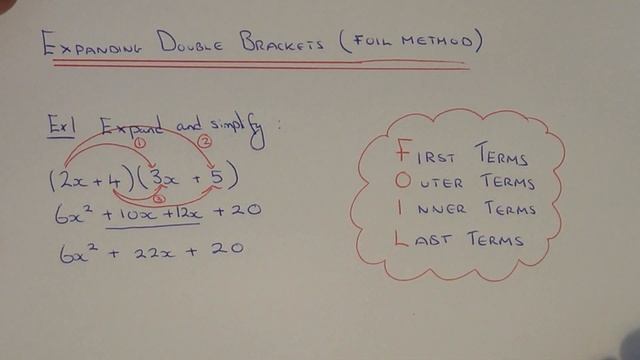 EXPANDING DOUBLE BRACKETS (FOIL METHOD)
Ex1 Expand and simplify:
① ②
(2x + 4)(3x + 5)
③
6x² + 10x + 12x + 20
6x² + 22x + 20
FIRST TERMS
OUTER TERMS
INNER TERMS
LAST TERMS